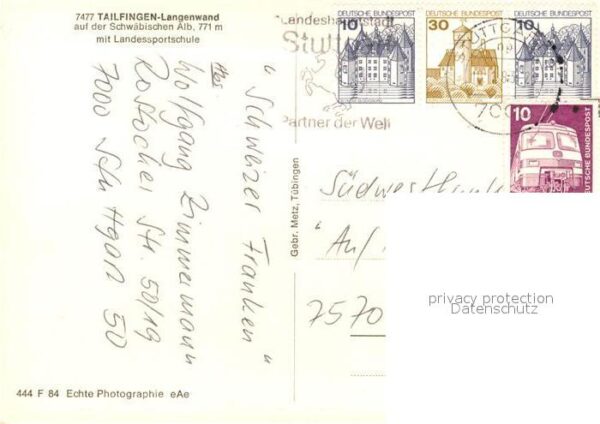 7477 TAILFINGEN-Langenwand
auf der Schwäbischen Alb, 771 m
mit Landessportschule
Landeshauptstadt
Partner der Welt
10 DEUTSCHE BUNDESPOST
30 DEUTSCHE BUNDESPOST
10 DEUTSCHE BUNDESPOST
10 DEUTSCHE BUNDESPOST
"Schweizer Franken"
Wolfgang Zimmermann
Str. 50/19
7000 50
Gebr. Metz, Tübingen
"Auf
7570
privacy protection
Datenschutz
444 F 84 Echte Photographie eAe